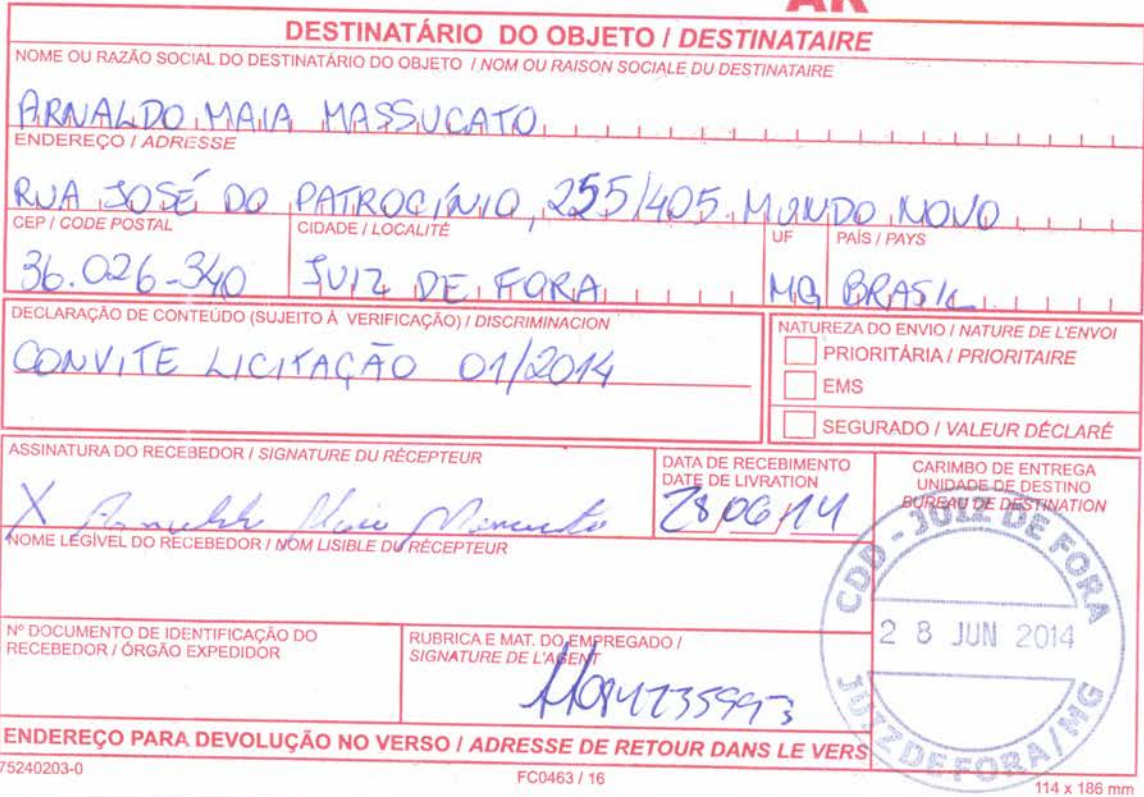 AR
DESTINATÁRIO DO OBJETO / DESTINATAIRE
NOME OU RAZÃO SOCIAL DO DESTINATÁRIO DO OBJETO / NOM OU RAISON SOCIALE DU DESTINATAIRE
ARNALDO MAIA MASSUCATO
ENDEREÇO / ADRESSE
RUA JOSÉ DO PATROCÍNIO, 255/405. MUNDO NOVO
CEP / CODE POSTAL CIDADE / LOCALITÉ UF PAÍS / PAYS
36.026-340 JUIZ DE FORA MG BRASIL
DECLARAÇÃO DE CONTEÚDO (SUJEITO À VERIFICAÇÃO) / DISCRIMINACION
CONVITE LICITAÇÃO 01/2014
NATUREZA DO ENVIO / NATURE DE L'ENVOI
PRIORITÁRIA / PRIORITAIRE
EMS
SEGURADO / VALEUR DÉCLARÉ
ASSINATURA DO RECEBEDOR / SIGNATURE DU RÉCEPTEUR
X Arnaldo Maia Massucato
DATA DE RECEBIMENTO
DATE DE LIVRATION
28/06/14
CARIMBO DE ENTREGA
UNIDADE DE DESTINO
BUREAU DE DESTINATION
CDD - JUIZ DE FORA
28 JUN 2014
JUIZ DE FORA/MG
NOME LEGÍVEL DO RECEBEDOR / NOM LISIBLE DU RÉCEPTEUR
Nº DOCUMENTO DE IDENTIFICAÇÃO DO
RECEBEDOR / ÓRGÃO EXPEDIDOR
RUBRICA E MAT. DO EMPREGADO /
SIGNATURE DE L'AGENT
ENDEREÇO PARA DEVOLUÇÃO NO VERSO / ADRESSE DE RETOUR DANS LE VERS
75240203-0
FC0463 / 16
114 x 186 mm